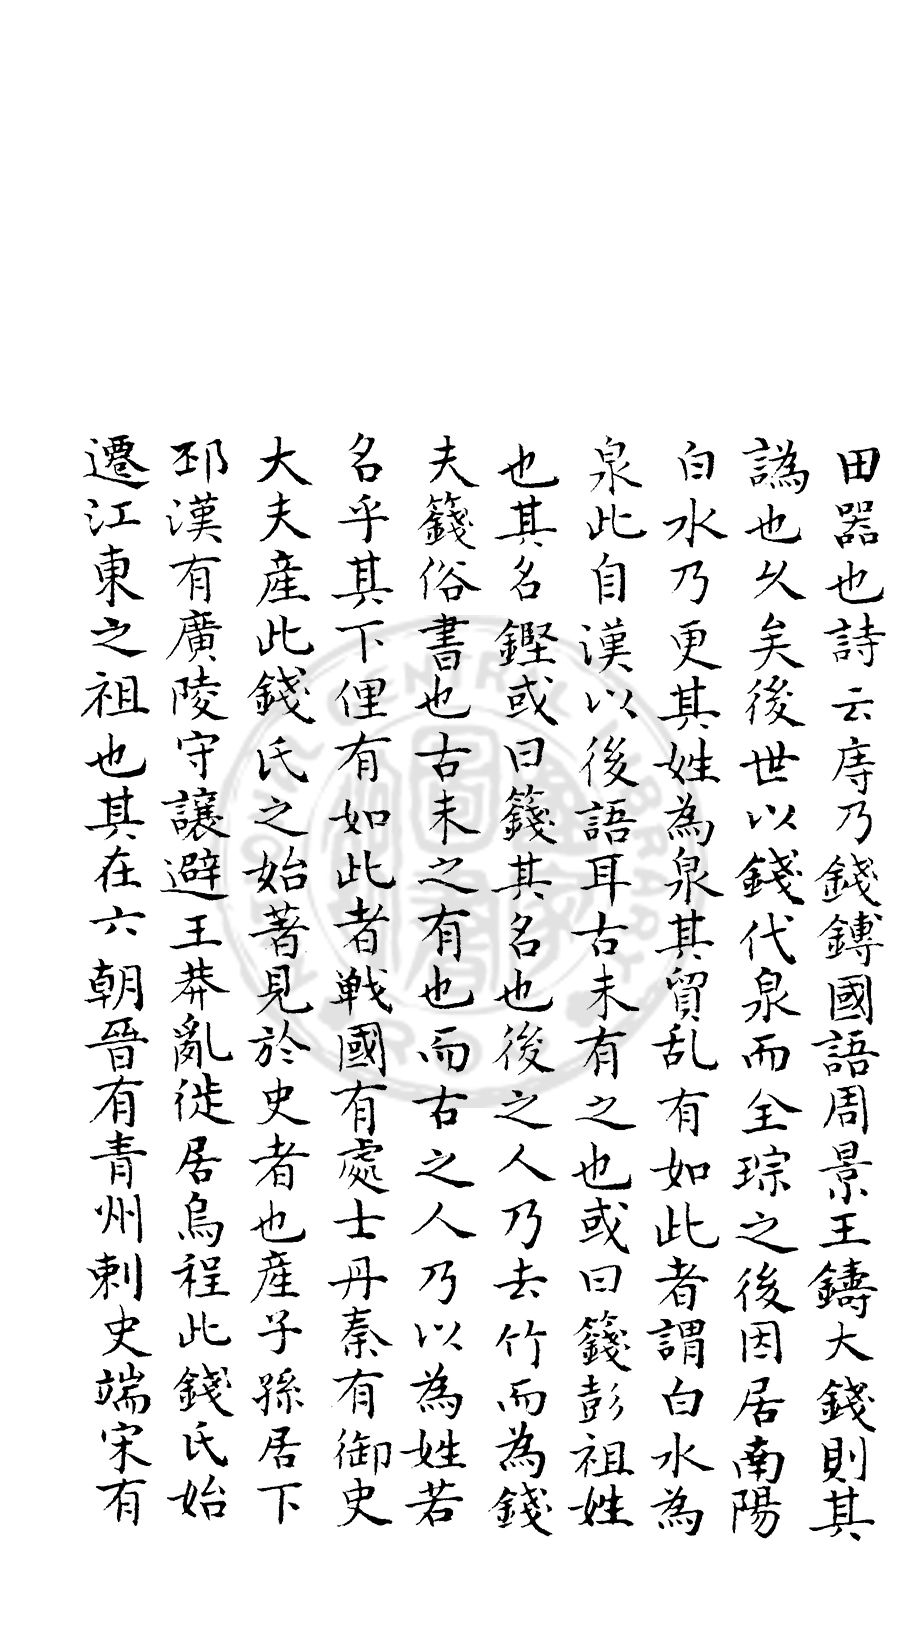 田器也詩云庤乃錢鎛國語周景王鑄大錢則其
譌也久矣後世以錢代泉而全琮之後因居南陽
白水乃更其姓為泉其貿乱有如此者謂白水為
泉此自漢以後語耳古未有之也或曰籛彭祖姓
也其名鏗或曰籛其名也後之人乃去竹而為錢
夫籛俗書也古未之有也而古之人乃以為姓若
名乎其下俚有如此者戰國有處士丹秦有御史
大夫產此錢氏之始著見於史者也產子孫居下
邳漢有廣陵守讓避王莽亂徙居烏程此錢氏始
遷江東之祖也其在六朝晉有青州刺史端宋有
NATIONAL CENTRAL LIBRARY
R.O.C.